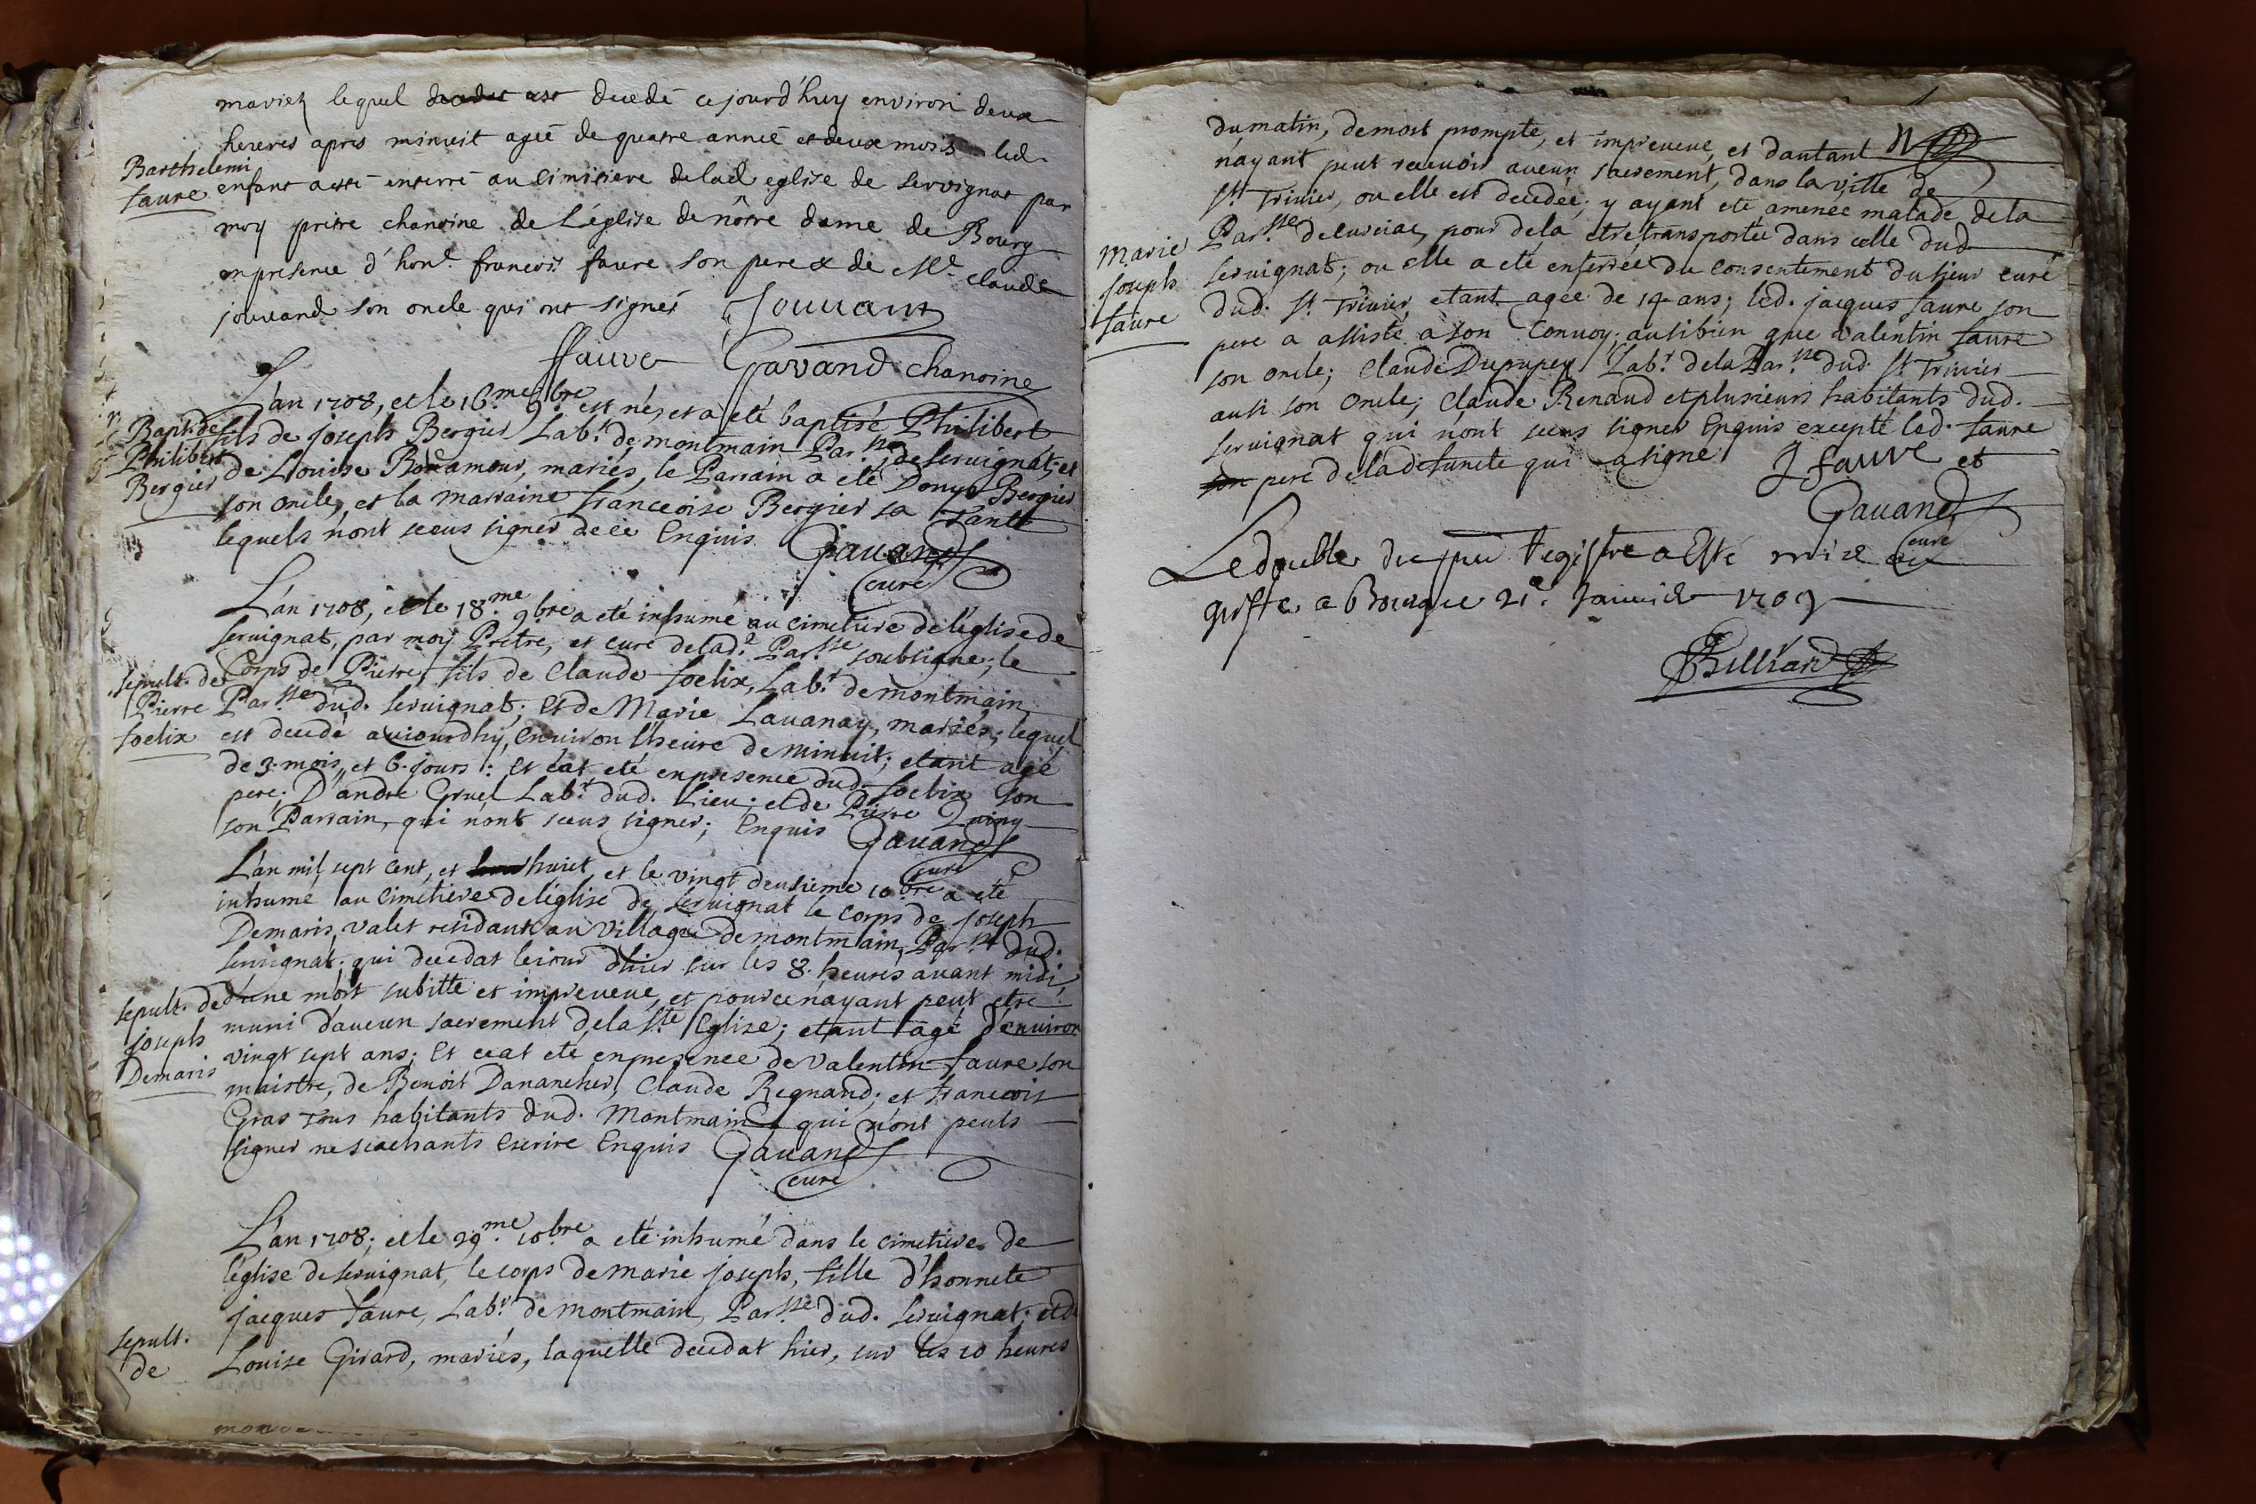 mariez lequel est decedé cejourd'huy environ deux
heures apres minuit agée de quatre année et deux mois led.
Barthelemi
faure
enfant aesté enterré au Cimitiere delad eglise de servignat par
moy pritre chanoine de L'église de nôtre dame de Bourg
en presence d'hon.e francois faure son pere & de Me. claude
jouvand son oncle qui ont signés Jouvant
ffaure Gavand chanoine
L'an 1708, et le 16.me 9.bre est né, et a eté baptisé Philibert
Bapt. de
Philibert
Bergier
fils de joseph Bergier Lab.r de montmain Par.sse de seruignat; et
de Louise Bonamour, mariés, le Parrain a eté Denys Bergier
son oncle, et la marraine françoise Bergier sa Tante
lequels n'ont sceus signer de ce Enquis Gauand
curé
L'an 1708, et le 18.me 9.bre a eté inhumé au cimetiere de l'église de
seruignat, par moy Prêtre, et curé delad.e Par.sse soubsigné; le
sepult. de
Pierre
foelix
Corps de Pierre fils de Claude foelix, Lab.r de montmain,
Par.sse dud. seruignat; et de Marie Lauanay, mariés; lequel
est decedé aujourdhy, Enuiron l'heure de minuit; etant agé
de 3. mois, et 6. jours: et c'at eté en presence dud. foelix son
pere; D'andré Gruel Lab.r dud. Lieu; et de Pierre
son Parrain, qui n'ont sceus signer; Enquis Gauand
curé
L'an mil sept cent, et huict, et le vingt deusieme 10.bre a eté
inhumé au cimetiere de l'église de seruignat le corps de joseph
Demaris, valet residant au village de montmain, Par.sse dud.
seruignat; qui decedat le jour d'hier sur les 8. heures auant midi,
sepult. de
joseph
Demaris
d'une mort subitte et impreueue, et pour ce n'ayant peut etre
muni d'aucun sacrement de la S.te Eglise; etant agé d'enuiron
vingt sept ans; Et ce at eté en presence de valentin faure son
maistre, de Benoit Danancher, Claude Regnand; et françois
Gras tous habitants dud. Montmain qui n'ont peuts
signer ne scachants Escrire Enquis Gauand
curé
L'an 1708; et le 29.me 10.bre a eté inhumé dans le cimetiere de
l'église de seruignat, le corps de marie joseph, fille d'honnete
jacques faure, Lab.r de montmain, Par.sse dud. seruignat; et de
sepult.
de
Louise Girard, mariés, laquelle decedat hier, sur les 10 heures
du matin, de mort prompte, et impreueue, et dautant
n'ayant peut receuoir aucun sacrement, dans la ville de
S.t Triuier, ou elle est decedée; y ayant eté amenée malade de la
marie
joseph
faure
Par.sse de curciac, pour de la etre transportée dans celle dud
seruignat; ou elle a eté enterrée du consentement du sieur curé
dud. S.t Triuier, etant agée de 14 ans; led. jacques faure son
pere a assisté a son Conuoy; ausi bien que valentin faure
son oncle; Claude Dupupey Lab.r de la Par.sse dud. S.t Triuier
ausi son oncle; Claude Renaud et plusieurs habitants dud.
seruignat qui n'ont sceus signer Enquis excepté led. faure
pere de la defuncte qui a signé J faure et
Gauand
curé
Le double du pnt Registre a Esté mise au
greffe a Bourg ce 21e. Januier 1709
Billiard